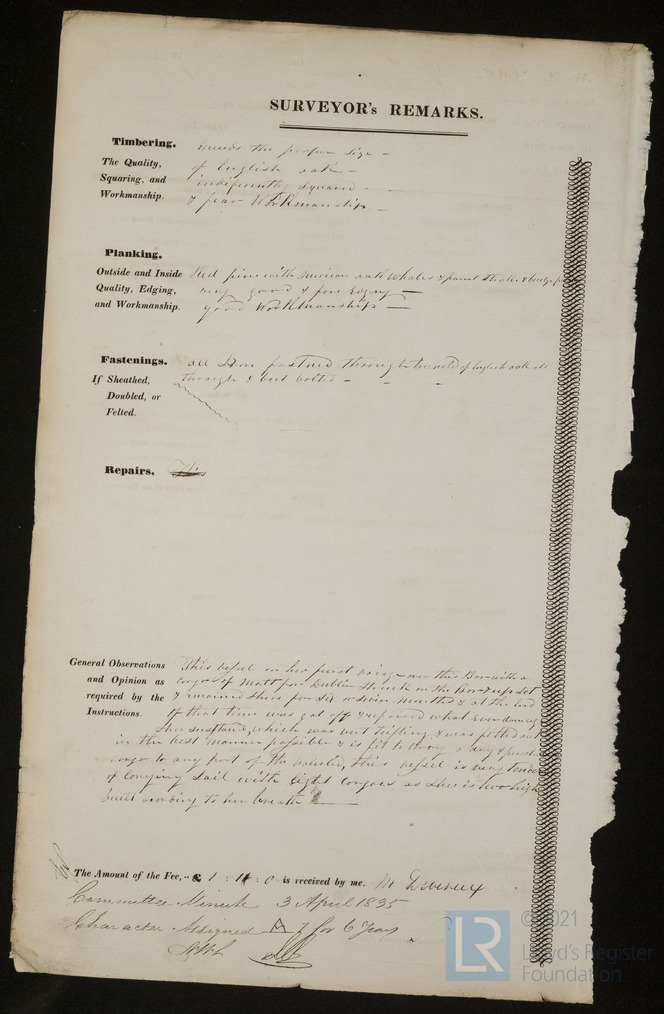 SURVEYOR's REMARKS.
Timbering.
The Quality,
Squaring, and
Workmanship.
the proper size -
of English oak -
indifferently squared -
& fear Workmanship -
Planking.
Outside and Inside
Quality, Edging,
and Workmanship.
Red pine with oak Whales &
very good & edging -
good Workmanship -
Fastenings.
If Sheathed,
Doubled, or
Felted.
all Iron fastned through of English oak all
through & but bolted - - -
Repairs.
General Observations
and Opinion as
required by the
Instructions.
This vessel on her furst over this Bar with a
cargo of Malt for Dublin Struck on the Bar & upset
& remained there for six or seven Months & at the end
of that time was got off & repaired what ever
She sustand, which was but trifling, & was fitted out
in the best manner possible & is fit to a dry &
cargo to any part of the world, this vessel is very tender
of Carying Sail with light Cargoes as She is two high
built acording to her breath
The Amount of the Fee, - £ 1 : 1 : 0 is received by me. M Devereux
Committee Minute 3 April 1835
Character Assigned A 1 for 6 Years
LR
© 2021
Lloyd's Register
Foundation